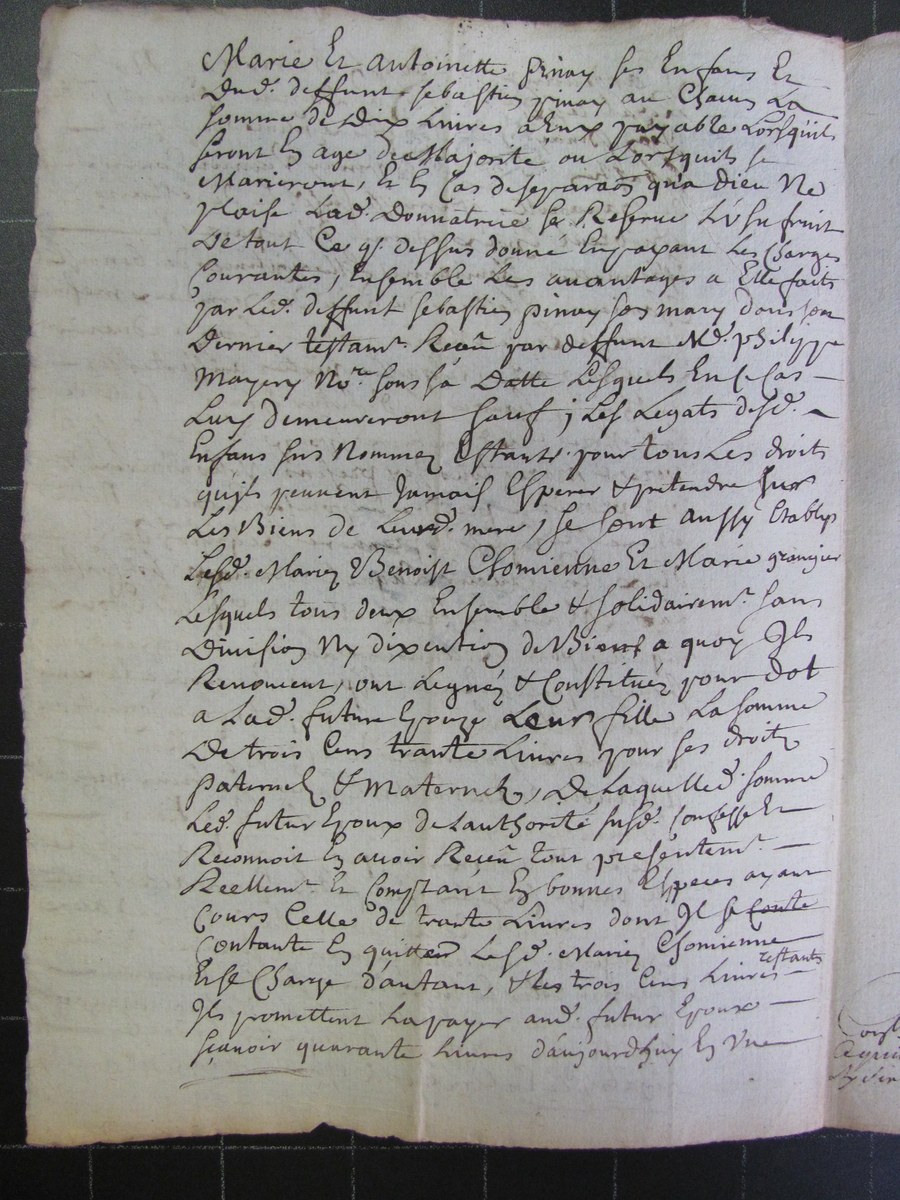 Marie Et Antoinette pinay ses Enfans Et
Dud. deffunt sebastien pinay au Chacun La
somme de Dix Livres a Eux payable Lorsquils
seront En age de Majorité ou Lorsquils se
Marieront, Et En Cas de separaon qu'a Dieu Ne
plaise Lad. Donnatrice se Reserve L'usufruit
De tout Ce q. dessus donné En payant Les Charges
Courantes, Ensemble Les avantages a Elle faits
par Led. deffunt sebastien pinay son mary dans son
Dernier testamt. Receu par deffunt Me. philippe
mayery Nore. sous sa Datte Lesquels En ce Cas
Luy demeureront sauf, Les Legats desd.
Enfans sus Nommez Estants pour tous Les droits
qu'ils peuvent Jamais Esperer & pretendre sur
Les Biens de Leurd. mere, se sont aussy Etablys
Lesd. Mariez Benoist Chomienne Et Marie grangier
Lesquels tous deux Ensemble & solidairemt. sans
Division Ny dixcution de Biens a quoy Ils
Renoncent, ont Legués & Constitués pour dot
a Lad. future Epouze Leur fille La somme
De trois Cens trante Livres pour ses droits
paternels & Maternels, De Laquelle d. somme
Led. futur Epoux de Lauthorité susd. Confesse Et
Reconnoit En avoir Receu tout presentemt.
Reellemt. Et Comptant En bonnes Especes ayant
Cours Celle de trante Livres dont Il se Conte
Contante En quitte Lesd. Mariez Chomienne
Et se Charge d'autant, & Les trois Cens Livres restants
Ils promettent La payer aud. futur Epoux
sçavoir quarante Livres d'aujourdhuy En Une